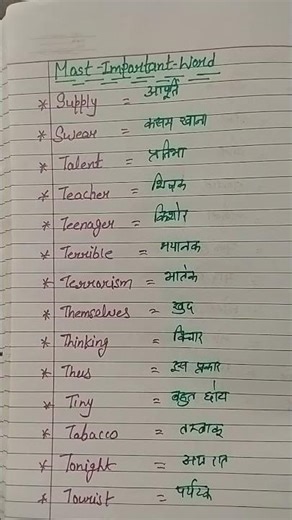 Most-Important-Word
* Supply = आपूर्ति
* Swear = कसम खाना
* Talent = प्रतिभा
* Teacher = शिक्षक
* Teenager = किशोर
* Terrible = भयानक
* Terrorism = आतंक
* Themselves = खुद
* Thinking = विचार
* Thus = इस प्रकार
* Tiny = बहुत छोटा
* Tabacco = तम्बाकू
* Tonight = आज रात
* Tourist = पर्यटक